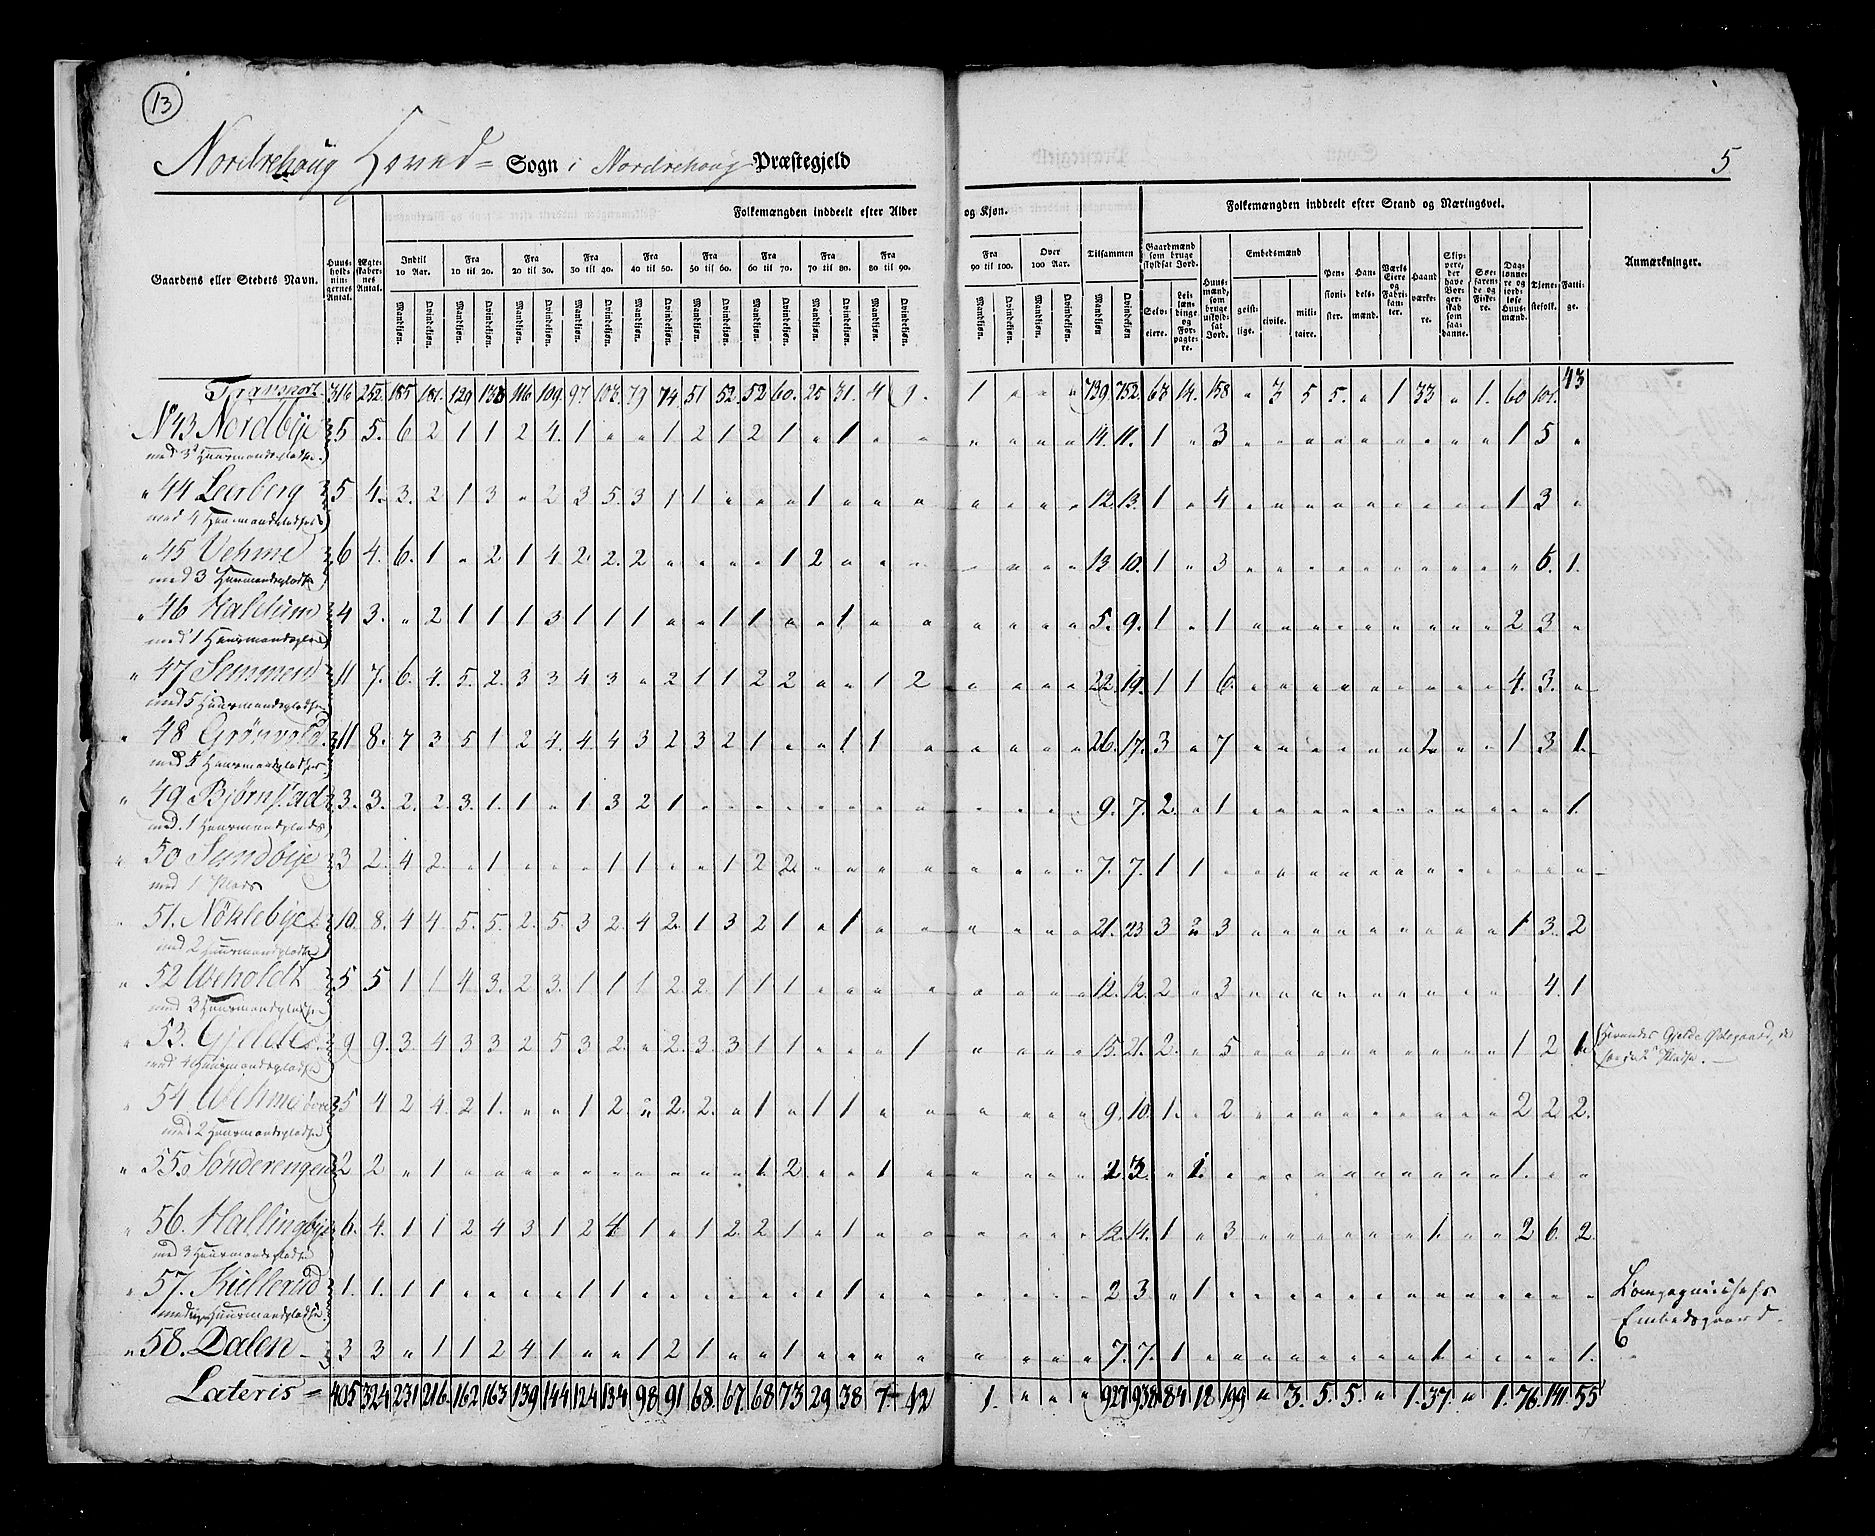 13
Nordrehoug Hoved= Sogn i Nordrehoug Præstegjeld
5
Gaardens eller Stedets Navn.
Huus-holdningernes Antal.
Ægteskabernes Antal.
Folkemængden inddeelt efter Alder og Kjøn.
Indtil 10 Aar. Fra 10 til 20. Fra 20 til 30. Fra 30 til 40. Fra 40 til 50. Fra 50 til 60. Fra 60 til 70. Fra 70 til 80. Fra 80 til 90. Fra 90 til 100. Over 100 Aar. Tilsammen
Mandkjøn. Qvindekjøn.
Folkemængden inddeelt efter Stand og Næringsvei.
Gaardmænd som bruge skyldsat Jord.
Selveiere.
Leilændinge og Forpagtere.
Huusmænd, som bruge uskyldsat Jord.
Embedsmænd
geistlige. civile. militaire.
Pensionister.
Handelsmænd.
Værks Eiere og Fabrikanter.
Haandværkere.
Skippere, der have Borgerskab som saadanne.
Søefarende og Fiskere.
Daglønnere og jordløse Huusmænd.
Tjenestefolk.
Fattige.
Anmærkninger.
Transport 316 252 185 181 129 133 116 109 97 103 79 74 51 52 52 60 25 31 4 9 1 " " " 739 752 63 14 158 " 3 5 5 " 1 33 " 1 60 101 43
No 43 Nordbye 5 5 6 2 1 1 2 4 1 " " 1 2 1 2 1 " 1 " " " " " " 14 11 1 " 3 " " " " " " " " " 1 5 "
med 3 Huusmandspladse
" 44 Leerberg 5 4 3 2 1 3 " 2 3 5 3 1 1 " " " 1 " " " " " " " 12 13 1 " 4 " " " " " " " " " 1 3 "
med 4 Huusmandspladse
" 45 Vehme 6 4 6 1 " 2 1 4 2 2 2 " " " " 1 2 " " " " " " " 13 10 1 " 3 " " " " " " " " " " 6 1
med 3 Huusmandspladse
" 46 Haldum 4 3 " 2 1 1 1 3 1 1 1 " " 1 1 " " 1 " " " " " " 5 9 1 " 1 " " " " " " " " " 2 3 "
med 1 Huusmandsplads
" 47 Semmen 11 7 6 4 5 2 3 3 4 3 " 2 1 1 2 2 " " 1 2 " " " " 22 19 1 1 6 " " " " " " " " " 4 3 "
med 5 Huusmandspladse
" 48 Grønvold 11 8 7 3 5 1 2 4 4 4 3 2 3 2 1 " " 1 1 " " " " " 26 17 3 " 7 " " " " " " 2 " " 1 3 1
med 5 Huusmandspladse
" 49 Bjørnstad 3 3 2 2 3 1 1 " 1 3 2 1 " " " " " " " " " " " " 9 7 2 " 1 " " " " " " " " " " " 1
med 1 Huusmandsplads
" 50 Sundbye 3 2 4 2 " 1 " " " 1 1 " " 1 2 2 " " " " " " " " 7 7 1 1 " " " " " " " " " " " " "
med 1 Plads
51. Nøklebye 10 8 4 4 5 5 2 5 3 2 4 2 1 3 2 1 " 1 " " " " " " 21 23 3 " 3 " " " " " " " " " 1 3 2
med 2 Huusmandspladse
" 52 Weholdt 5 5 1 1 4 3 2 3 1 1 1 2 2 1 1 1 " " " " " " " " 12 12 2 " 3 " " " " " " " " " " 4 1
med 3 Huusmandspladse
" 53. Gjelde 9 9 3 4 3 3 2 5 3 2 " 2 3 3 1 1 " " " 1 " " " " 15 21 2 " 5 " " " " " " " " " 1 2 1
med 4 Huusmandspladse
" 54 Wehme 5 4 2 4 2 1 " " 1 2 " 2 2 " 1 " 1 1 " " " " " " 9 10 1 " 2 " " " " " " " " " 2 2 2
med 2 Huusmandspladse
" 55. Sønderengen 2 2 " 1 " " " " " " " " " " 1 2 " " 1 " " " " " 2 3 " 1 " " " " " " " " " " 1 " "
" 56. Hallingbye 6 4 1 1 2 4 3 1 2 4 1 " 1 2 2 1 " 1 " " " " " " 12 14 1 " 3 " " " " " " 1 " " 2 6 2
med 3 Huusmandspladse
" 57. Kullerud 1 1 1 1 " " " " 1 1 " " " " " " " 1 " " " " " " 2 3 " 1 " " " " " " " " " " " " "
Compagniechefs
Embedsgaard
" 58. Dalen 3 3 " 1 1 2 4 1 " " 1 2 1 " " 1 " " " " " " " " 7 7 1 " " " " " " " " 1 " " " " 1
Lateris = 405 324 231 216 162 163 139 144 124 134 98 91 68 67 68 73 29 38 7 12 1 " " " 927 938 84 18 199 " 3 5 5 " 1 37 " 1 76 141 55